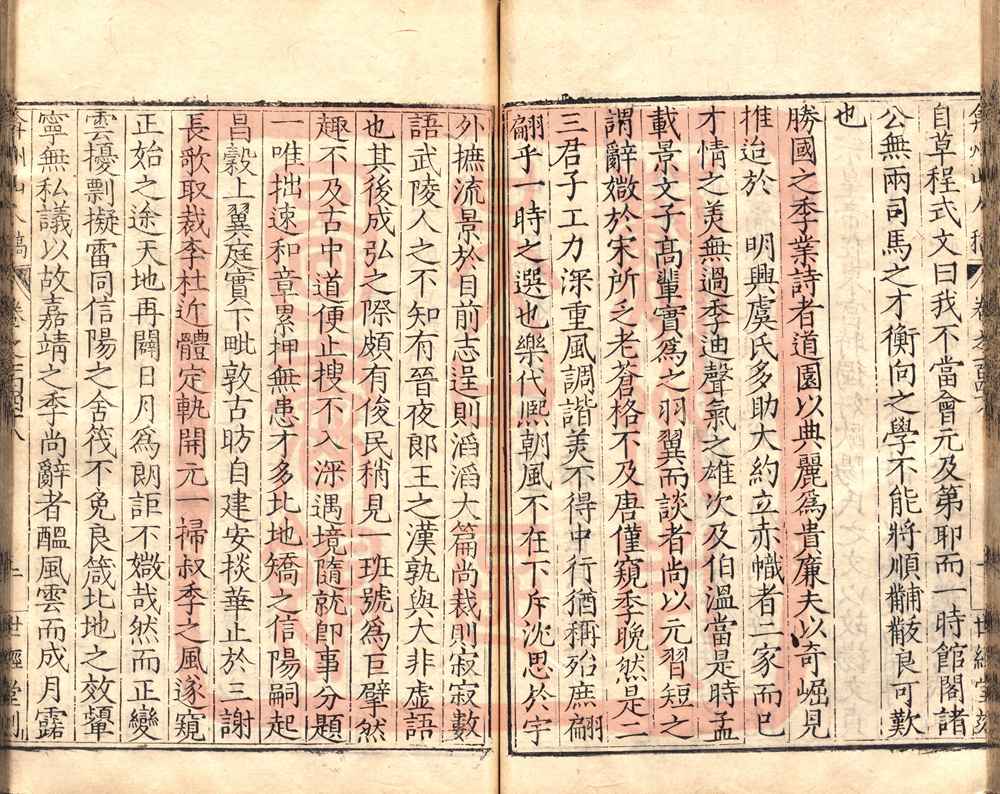 自草程式文曰我不當會元及第耶而一時館閣諸
公無兩司馬之才衡向之學不能將順黼黻良可歎
也
勝國之季業詩者道園以典麗爲貴廉夫以奇崛見
推迨於　明興虞氏多助大約立赤幟者二家而已
才情之美無過季迪聲氣之雄次及伯溫當是時孟
載景文子高輩實爲之羽翼而談者尚以元習短之
謂辭媺於宋所乏老蒼格不及唐僅窺季晚然是二
三君子工力深重風調諧美不得中行猶稱殆庶翩
翩乎一時之選也樂代熈朝風不在下斥沈思於宇
外摭流景於目前志逞則滔滔大篇尚裁則寂寂數
語武陵人之不知有晉夜郎王之漢孰與大非虚語
也其後成弘之際頗有俊民稍見一班號爲巨擘然
趣不及古中道便止搜不入深遇境隨就即事分題
一唯拙速和章累押無患才多北地矯之信陽嗣起
昌穀上翼庭實下毗敦古昉自建安掞華止於三謝
長歌取裁李杜近體定軌開元一掃叔季之風遂窺
正始之途天地再闢日月爲朗詎不媺哉然而正變
雲擾剽擬雷同信陽之舍筏不免良箴北地之效顰
寧無私議以故嘉靖之季尚辭者醞風雲而成月露